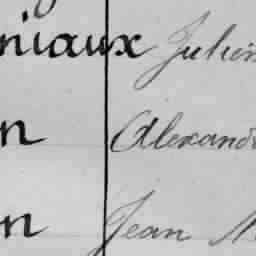 niaux Julien
n Alexand
n Jean M